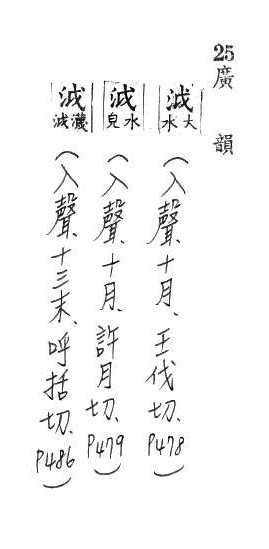 25廣韻
泧 大水 (入聲、十月、王伐切、P478)
泧 水皃 (入聲、十月、許月切、P479)
泧 瀎泧 (入聲、十三末、呼括切、P486)